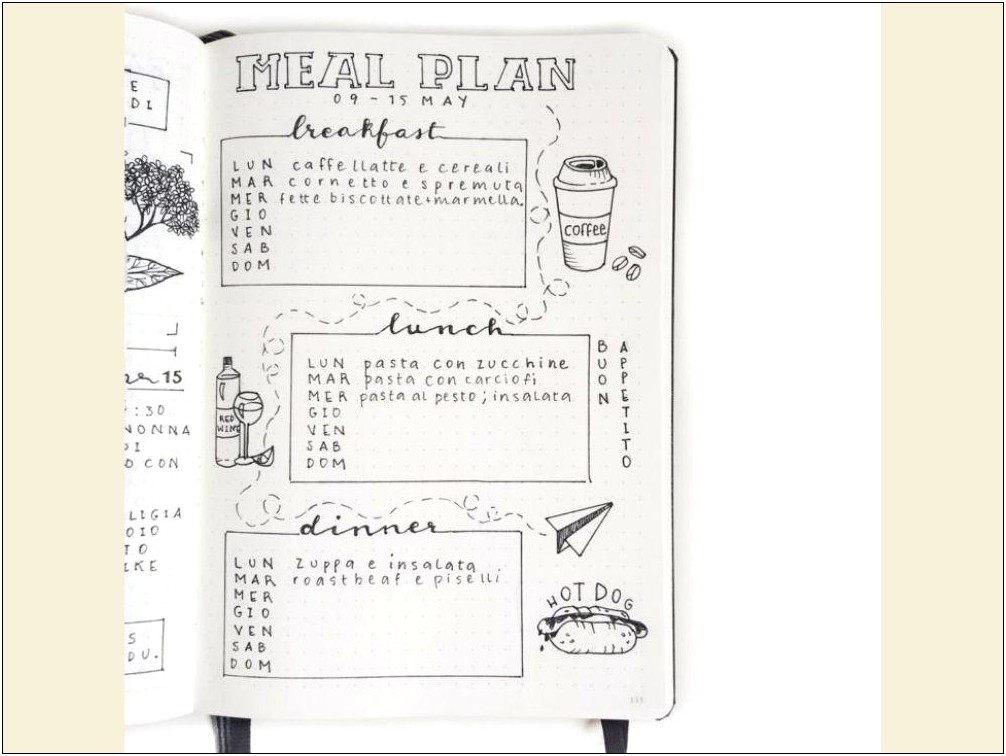 E
DI
15
:30
NONNA
DI
CON
LIGIA
OIO
TO
IKE
S
DU.
MEAL PLAN
09-15 MAY
breakfast
LUN caffellatte e cereali
MAR cornetto e spremuta
MER fette biscottate+marmella.
GIO
VEN
SAB
DOM
coffee
lunch
LUN pasta con zucchine
MAR pasta con carciofi
MER pasta al pesto; insalata
GIO
VEN
SAB
DOM
BUON
APPETITO
RED
WINE
dinner
LUN zuppa e insalata
MAR roastbeaf e piselli
MER
GIO
VEN
SAB
DOM
HOT DOG